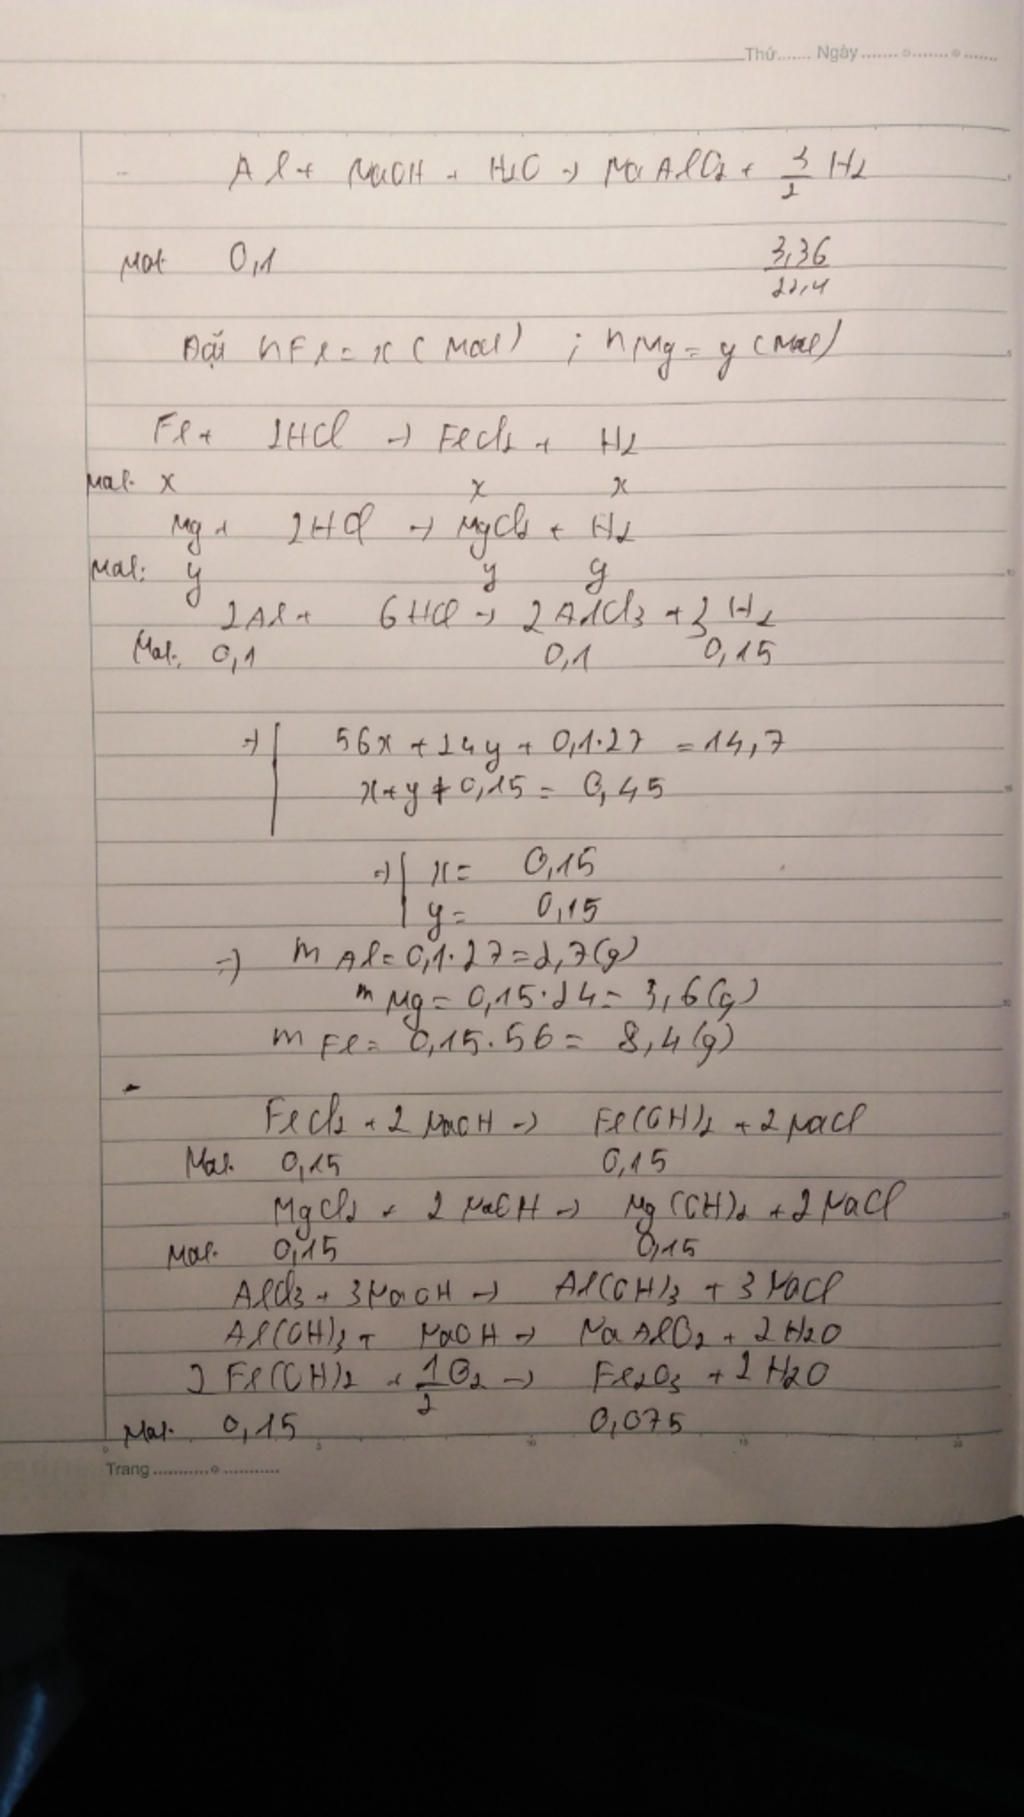 Thứ....... Ngày ....... o ....... o .......
Al + NaOH + H2O → NaAlO2 + 3/2 H2
mol 0,1 3,36/22,4
Đặt nFe = x (mol) ; nMg = y (mol)
Fe + 2HCl → FeCl2 + H2
mol: x x x
Mg + 2HCl → MgCl2 + H2
mol: y y y
2Al + 6HCl → 2AlCl3 + 3H2
mol: 0,1 0,1 0,15
→ | 56x + 24y + 0,1.27 = 14,7
x + y + 0,15 = 0,45
→ | x = 0,15
y = 0,15
=) m Al = 0,1.27 = 2,7 (g)
m Mg = 0,15.24 = 3,6 (g)
m Fe = 0,15.56 = 8,4 (g)
- FeCl2 + 2NaOH → Fe(OH)2 + 2NaCl
mol. 0,15 0,15
MgCl2 + 2NaOH → Mg(OH)2 + 2NaCl
mol. 0,15 0,15
AlCl3 + 3NaOH → Al(OH)3 + 3NaCl
Al(OH)3 + NaOH → NaAlO2 + 2H2O
2Fe(OH)2 + 1/2 O2 → Fe2O3 + 2H2O
mol. 0,15 0,075
Trang ........... o ...........